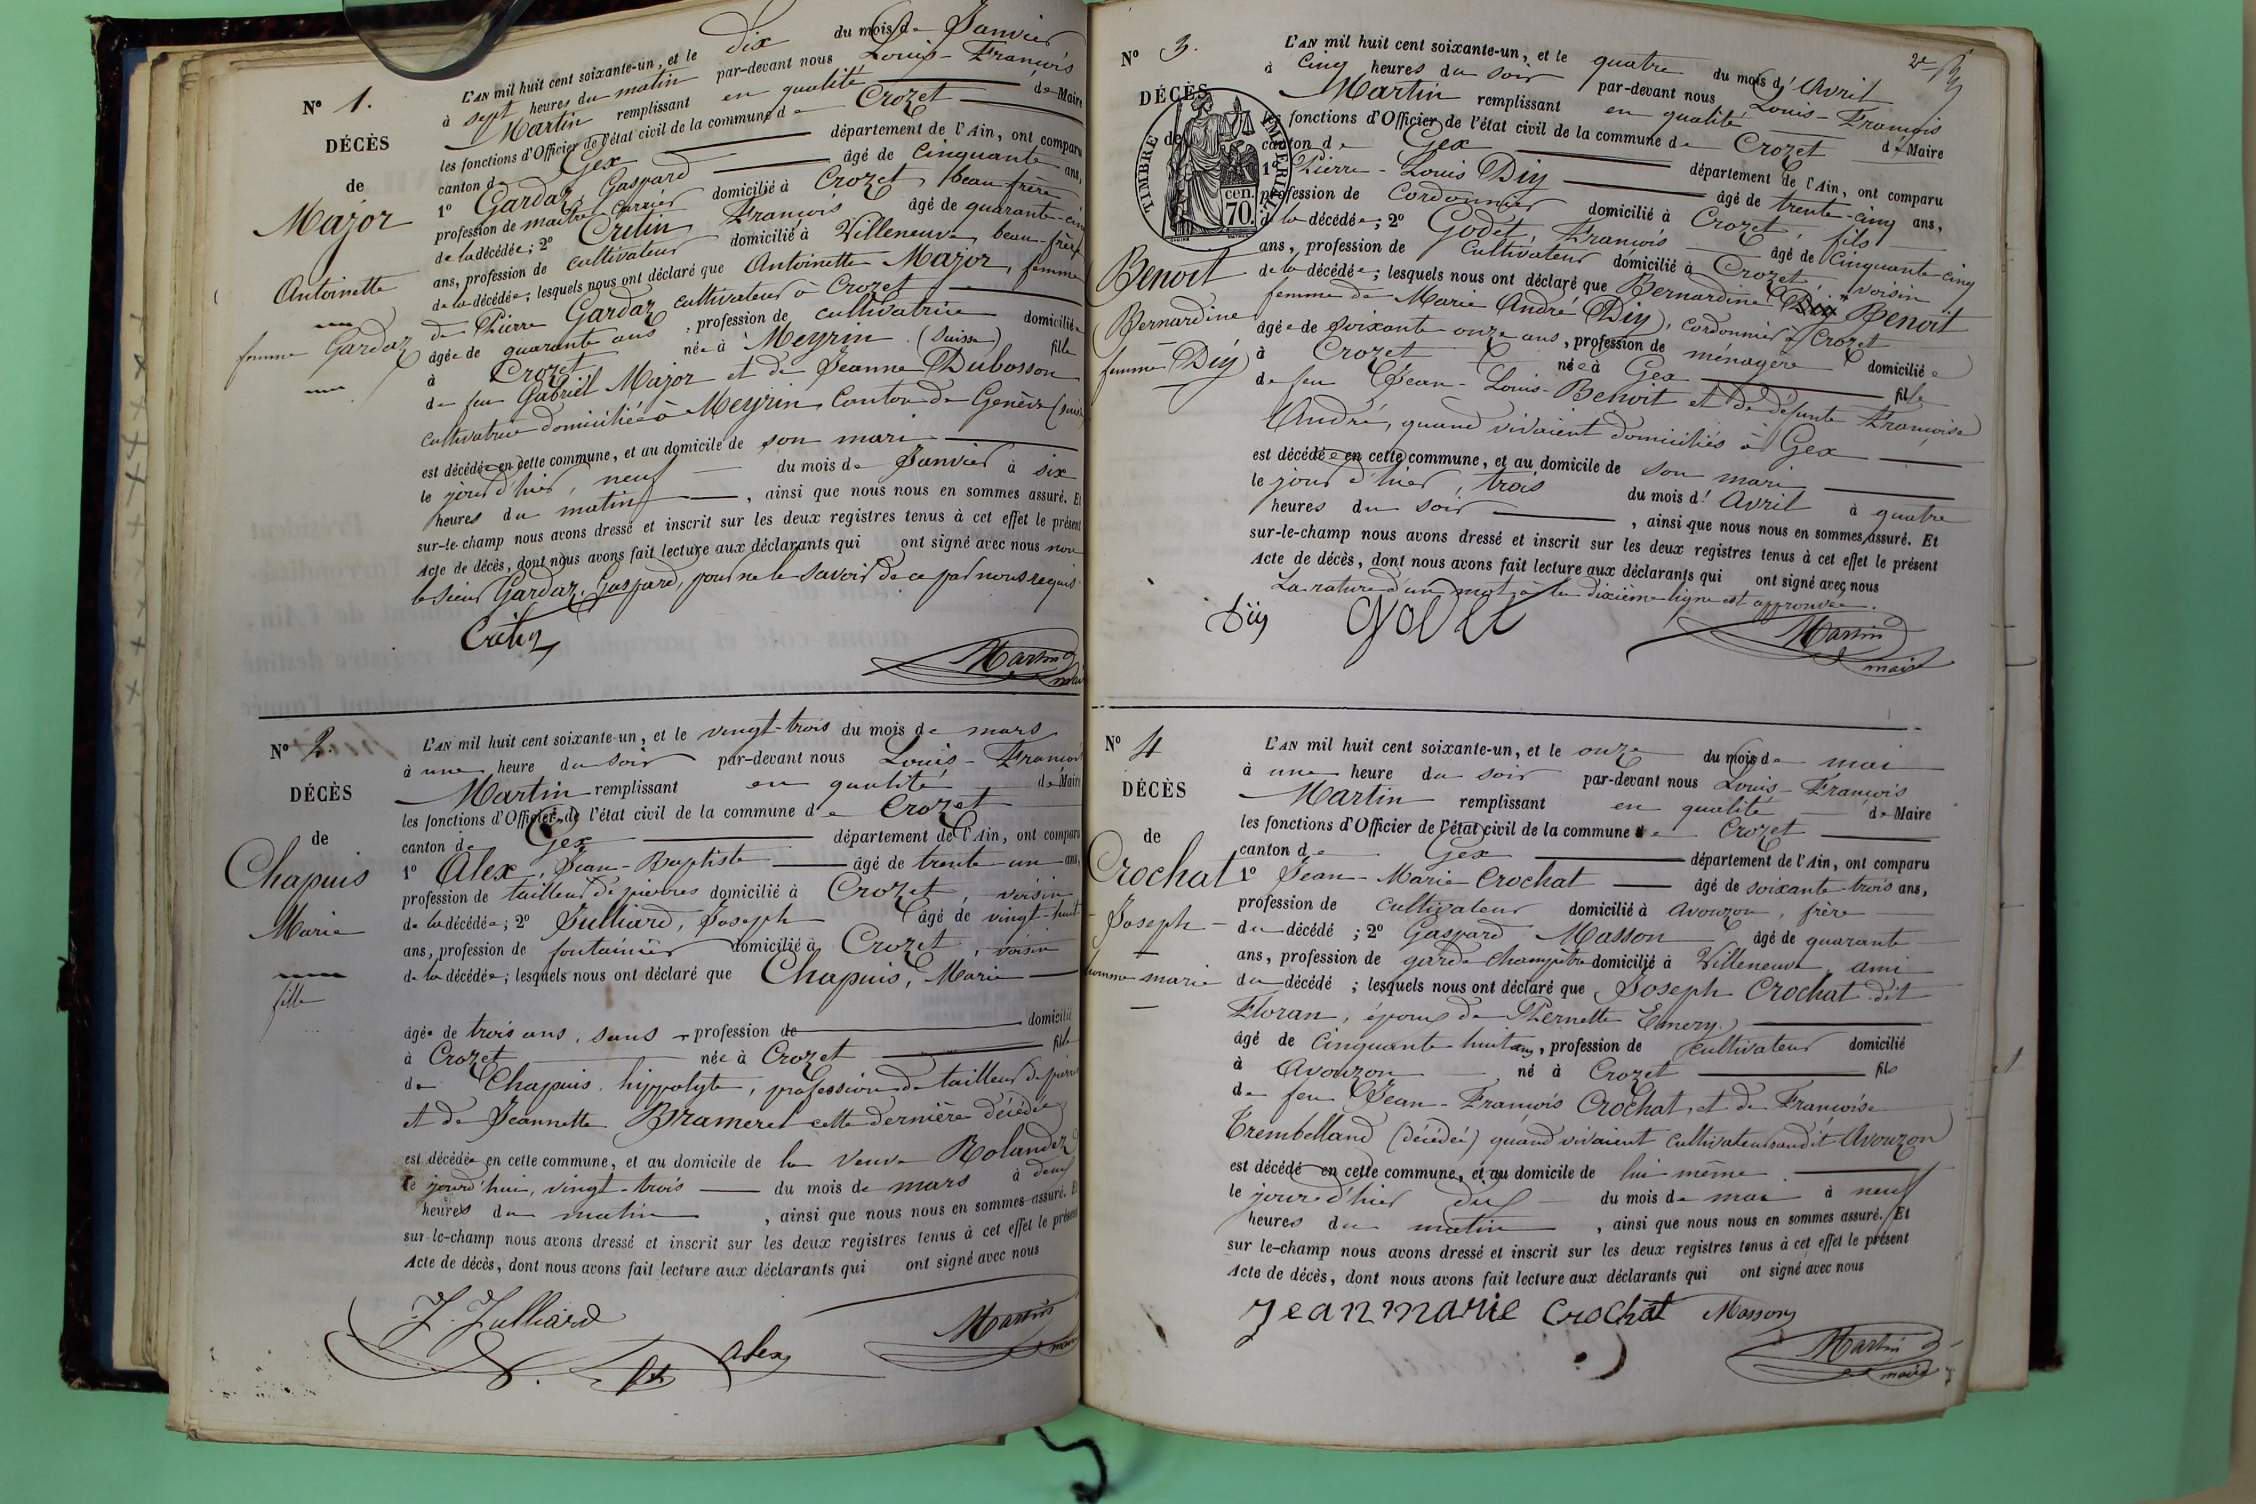 N° 1.
DÉCÈS
de
Major
Antoinette
femme Gardaz
L'AN mil huit cent soixante-un, et le dix du mois de Janvier
à sept heures du matin par-devant nous Louis-François
Martin remplissant en qualité de Maire
les fonctions d'Officier de l'état civil de la commune de Crozet
canton de Gex département de l'Ain, ont comparu
1° Gardaz, Gaspard âgé de cinquante ans,
profession de maître carrier domicilié à Crozet, beau-frère
de la décédée; 2° Crétin, François âgé de quarante-cinq
ans, profession de cultivateur domicilié à Villeneuve, beau-frère
de la décédée; lesquels nous ont déclaré que Antoinette Major, femme
de Pierre Gardaz cultivateur à Crozet
âgée de quarante ans, profession de cultivatrice domiciliée
à Crozet née à Meyrin (Suisse) fille
de feu Gabriel Major et de Jeanne Dubosson
cultivatrice domiciliée à Meyrin, Canton de Genève
est décédée en cette commune, et au domicile de son mari
le jour d'hier, neuf du mois de Janvier à six
heures du matin, ainsi que nous nous en sommes assuré. Et
sur-le-champ nous avons dressé et inscrit sur les deux registres tenus à cet effet le présent
Acte de décès, dont nous avons fait lecture aux déclarants qui ont signé avec nous non
le sieur Gardaz, Gaspard, pour ne le savoir de ce par nous requis
Crétin
Martin
maire
N° 2.
DÉCÈS
de
Chapuis
Marie
fille
L'AN mil huit cent soixante-un, et le vingt-trois du mois de mars
à une heure du soir par-devant nous Louis-François
Martin remplissant en qualité de Maire
les fonctions d'Officier de l'état civil de la commune de Crozet
canton de Gex département de l'Ain, ont comparu
1° Alex, Jean-Baptiste âgé de trente un ans,
profession de tailleur de pierres domicilié à Crozet, voisin
de la décédée; 2° Julliard, Joseph âgé de vingt-huit
ans, profession de fontainier domicilié à Crozet, voisin
de la décédée; lesquels nous ont déclaré que Chapuis, Marie
âgée de trois ans, sans profession de domicilié
à Crozet née à Crozet fille
de Chapuis hippolyte, profession de tailleur de pierres
et de Jeannette Brameret cette dernière décédée
est décédée en cette commune, et au domicile de la veuve Rolandez
le jourd'hui, vingt-trois du mois de mars à deux
heures du matin, ainsi que nous nous en sommes assuré. Et
sur-le-champ nous avons dressé et inscrit sur les deux registres tenus à cet effet le présent
Acte de décès, dont nous avons fait lecture aux déclarants qui ont signé avec nous
J. Julliard
alex
Martin
maire
N° 3.
DÉCÈS
de
TIMBRE IMPÉRIAL
70 cen.
Benoit
Bernardine
femme Diÿ
L'AN mil huit cent soixante-un, et le quatre du mois d'Avril
à cinq heures du soir par-devant nous Louis-François
Martin remplissant en qualité de Maire
les fonctions d'Officier de l'état civil de la commune de Crozet
canton de Gex département de l'Ain, ont comparu
1° Pierre-Louis Diÿ âgé de trente-cinq ans,
profession de cordonnier domicilié à Crozet, fils
de la décédée; 2° Godet, François âgé de cinquante-cinq
ans, profession de cultivateur domicilié à Crozet, voisin
de la décédée; lesquels nous ont déclaré que Bernardine Diÿ Benoit
femme de Marie André Diÿ, cordonnier à Crozet
âgée de soixante onze ans, profession de ménagère domiciliée
à Crozet née à Gex fille
de feu Jean-Louis Benoit et de défunte Françoise
André, quand vivaient domiciliés à Gex
est décédée en cette commune, et au domicile de son mari
le jour d'hier, trois du mois d'Avril à quatre
heures du soir, ainsi que nous nous en sommes assuré. Et
sur-le-champ nous avons dressé et inscrit sur les deux registres tenus à cet effet le présent
Acte de décès, dont nous avons fait lecture aux déclarants qui ont signé avec nous
La rature d'un mot à la dixième ligne est approuvée.
Diÿ Godet
Martin
maire
N° 4
DÉCÈS
de
Crochat
Joseph
homme marié
L'AN mil huit cent soixante-un, et le onze du mois de mai
à une heure du soir par-devant nous Louis-François
Martin remplissant en qualité de Maire
les fonctions d'Officier de l'état civil de la commune de Crozet
canton de Gex département de l'Ain, ont comparu
1° Jean-Marie Crochat âgé de soixante-trois ans,
profession de cultivateur domicilié à Avouzon, frère
du décédé; 2° Gaspard Masson âgé de quarante
ans, profession de garde champêtre domicilié à Villeneuve, ami
du décédé; lesquels nous ont déclaré que Joseph Crochat dit
Floran, époux de Pernette Emery
âgé de Cinquante huit ans, profession de cultivateur domicilié
à Avouzon né à Crozet fils
de feu Jean-François Crochat, et de Françoise
Trembelland (décédée) quand vivaient cultivateurs audit Avouzon
est décédé en cette commune, et au domicile de lui même
le jour d'hier dix du mois de mai à neuf
heures du matin, ainsi que nous nous en sommes assuré. Et
sur le-champ nous avons dressé et inscrit sur les deux registres tenus à cet effet le présent
Acte de décès, dont nous avons fait lecture aux déclarants qui ont signé avec nous
Jean marie Crochat Masson
Martin
maire